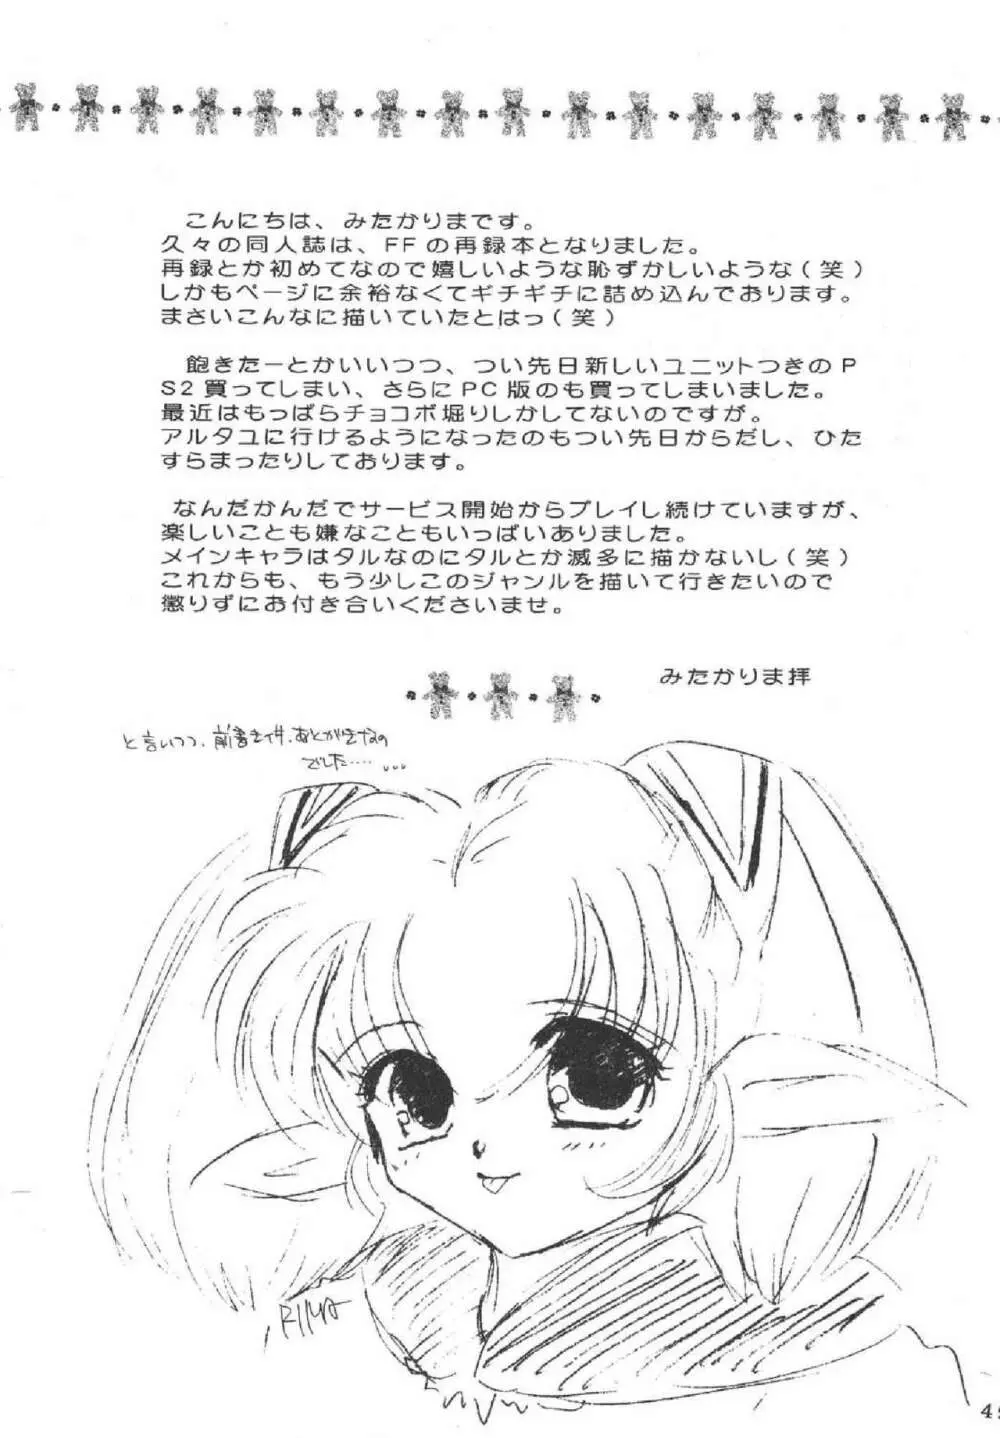 こんにちは、みたかりまです。
久々の同人誌は、FFの再録本となりました。
再録とか初めてなので嬉しいような恥ずかしいような(笑)
しかもページに余裕なくてギチギチに詰め込んでおります。
まさいこんなに描いていたとはっ(笑)
飽きたーとかいいつつ、つい先日新しいユニットつきのP
S2買ってしまい、さらにPC版のも買ってしまいました。
最近はもっぱらチョコボ堀りしかしてないのですが。
アルタユに行けるようになったのもつい先日からだし、ひた
すらまったりしております。
なんだかんだでサービス開始からプレイし続けていますが、
楽しいことも嫌なこともいっぱいありました。
メインキャラはタルなのにタルとか滅多に描かないし(笑)
これからも、もう少しこのジャンルを描いて行きたいので
懲りずにお付き合いくださいませ。
みたかりま拝
と言いつつ、前書き件、あとがきなの
でした……、、、
RIMA